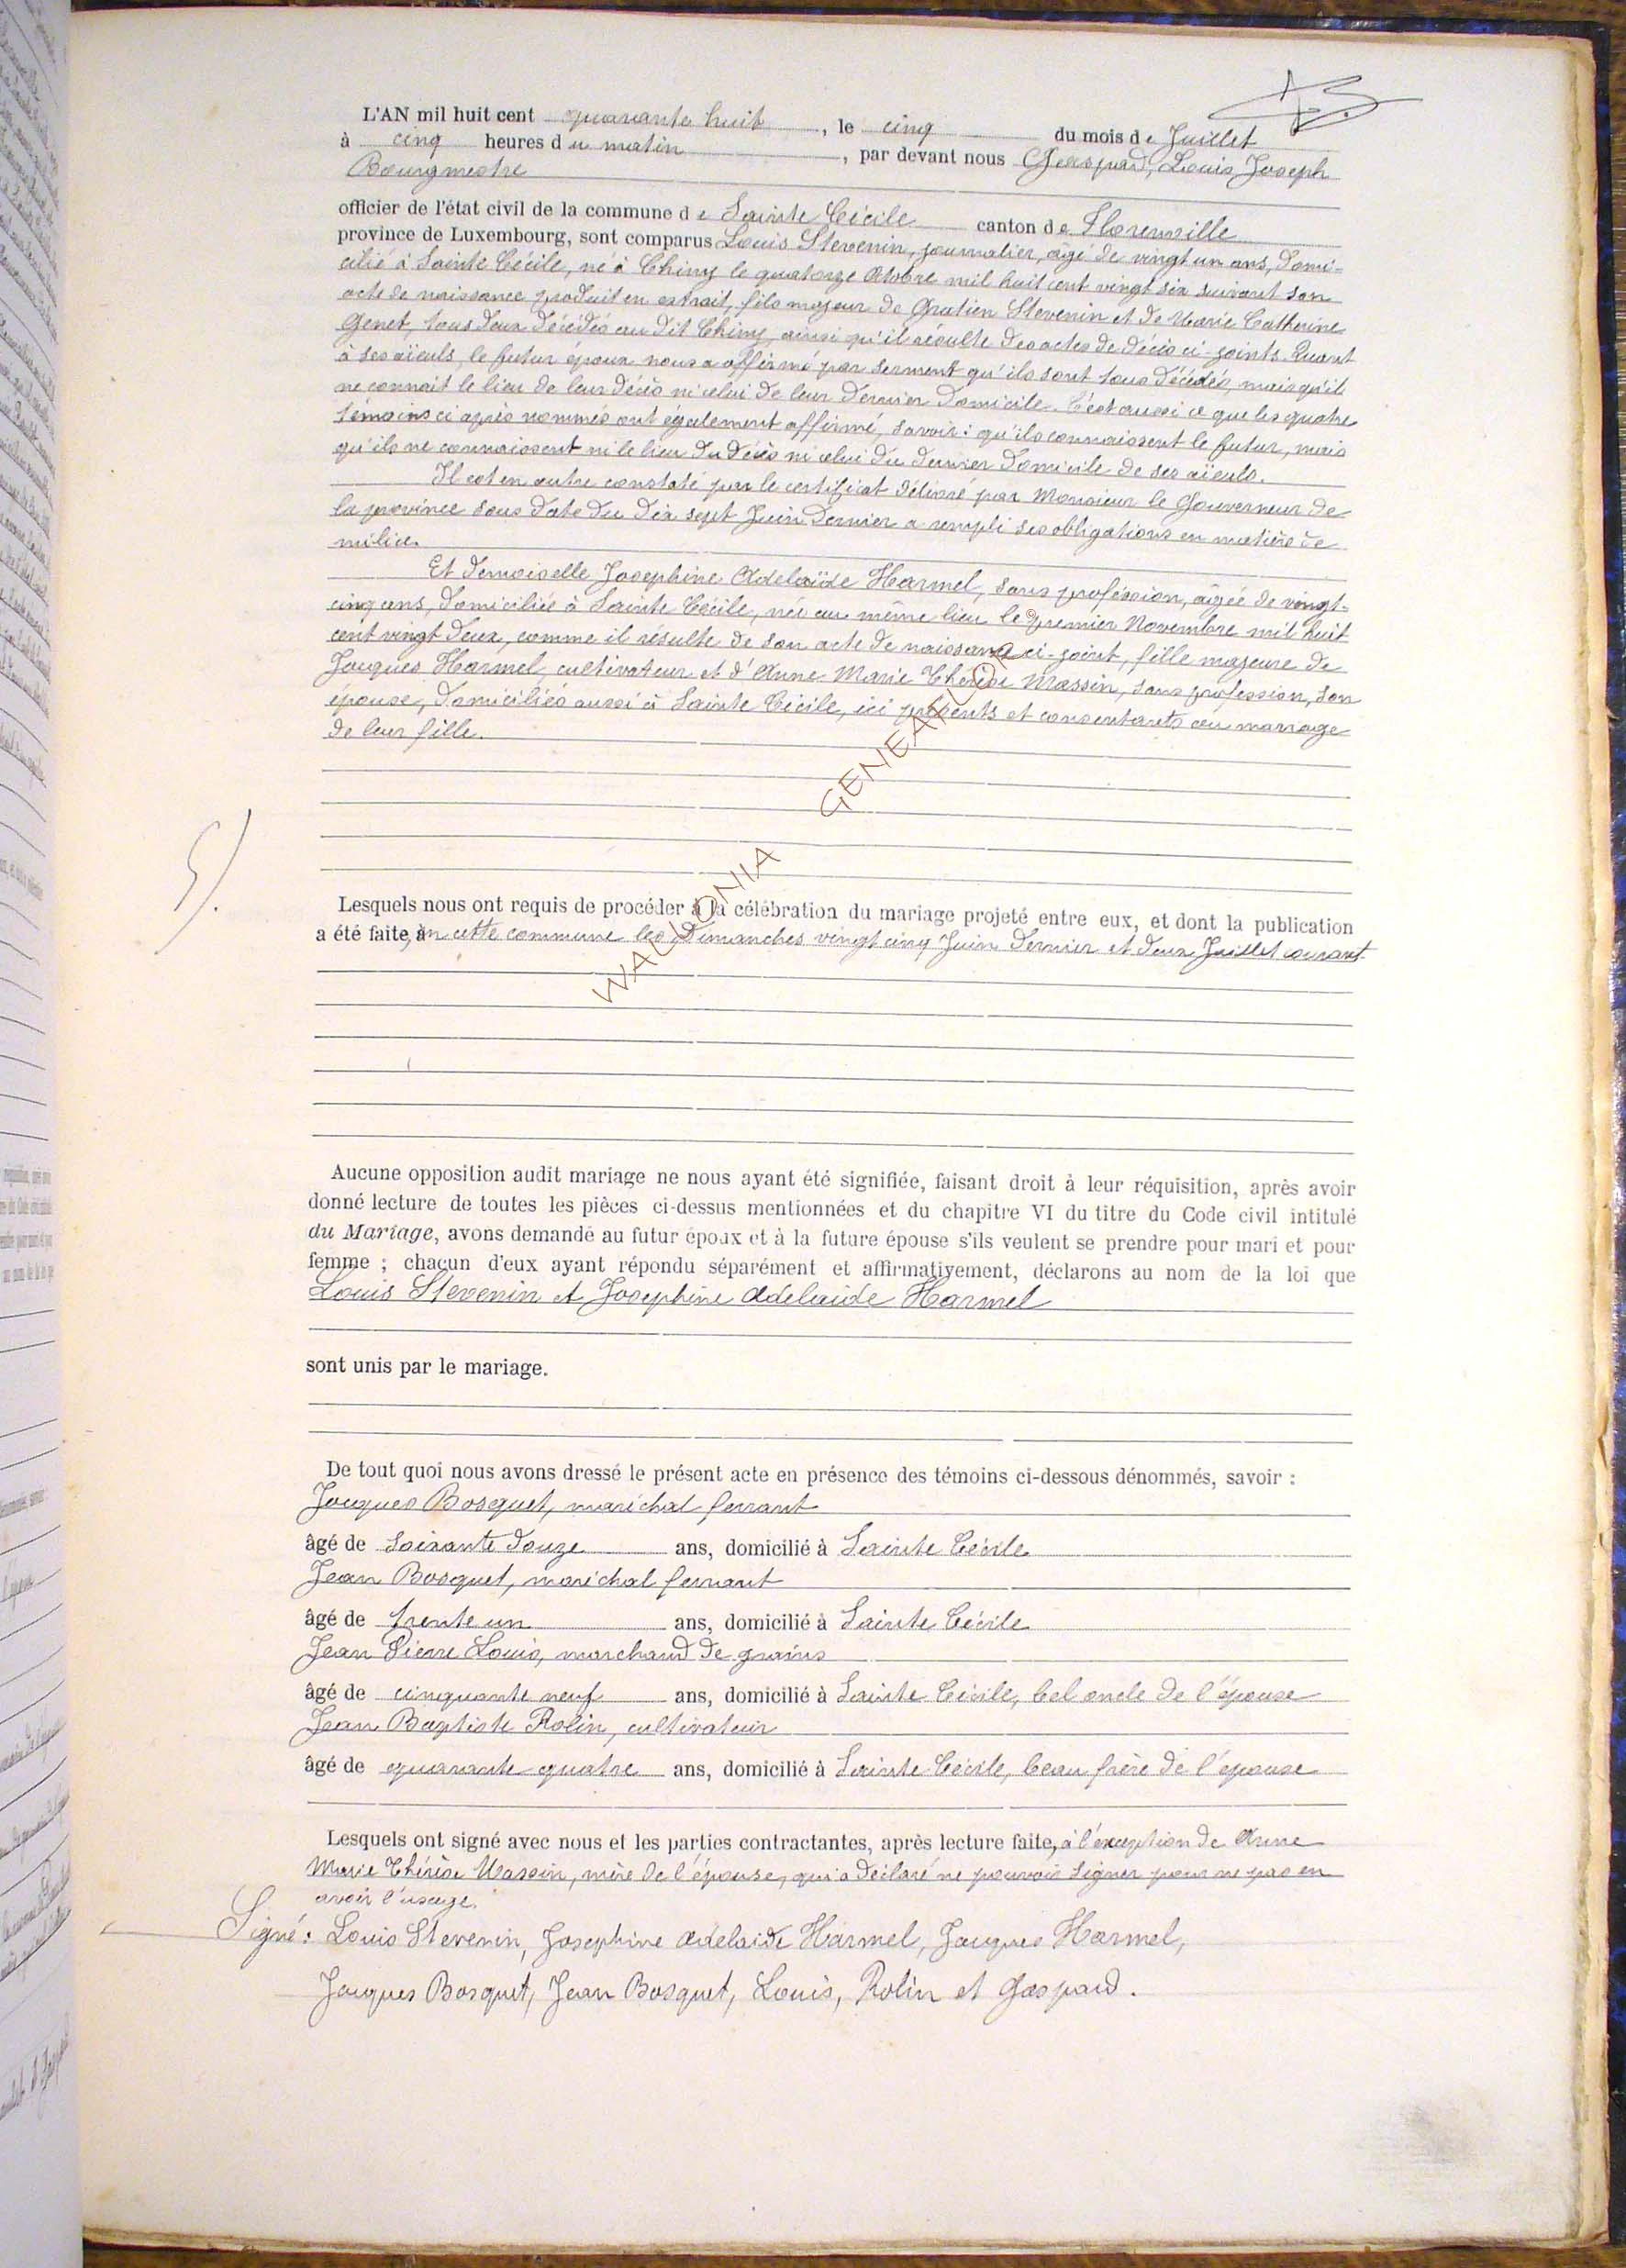 L'AN mil huit cent quarante huit, le cinq du mois de Juillet
à cinq heures du matin, par devant nous Gaspard, Louis Joseph
Bourgmestre
officier de l'état civil de la commune de Sainte Cécile canton de Florenville
province de Luxembourg, sont comparus Louis Stevenin, journalier, âgé de vingt un ans, domi-
cilié à Sainte Cécile, né à Chiny le quatorze Octobre mil huit cent vingt six suivant son
acte de naissance produit en extrait, fils majeur de Gratien Stevenin et de Marie Catherine
Genet, tous deux décédés au dit Chiny, ainsi qu'il résulte des actes de décès ci-joints. Quant
à ses aïeuls, le futur époux nous a affirmé par serment qu'ils sont tous décédés, mais qu'il
ne connait le lieu de leur décès ni celui de leur dernier domicile. C'est aussi ce que les quatre
témoins ci après nommés ont également affirmé, savoir: qu'ils connaissent le futur, mais
qu'ils ne connaissent ni le lieu du décès ni celui du dernier domicile de ses aïeuls.
Il est en outre constaté par le certificat délivré par Monsieur le Gouverneur de
la province sous date du dix sept Juin dernier a rempli ses obligations en matière de
milice.
Et demoiselle Josephine Adelaïde Harmel, sans proféssion, âgée de vingt-
cinq ans, domiciliée à Sainte Cécile, née au même lieu le premier Novembre mil huit
cent vingt deux, comme il résulte de son acte de naissance ci-joint, fille majeure de
Jacques Harmel, cultivateur et d'Anne Marie Thérèse Massin, sans profession, son
épouse, domiciliés aussi à Sainte Cécile, ici présents et consentants au mariage
de leur fille.
WALLONIA GENEAFLOR
5).
Lesquels nous ont requis de procéder à la célébration du mariage projeté entre eux, et dont la publication
a été faite, en cette commune les Dimanches vingt cinq Juin dernier et deux Juillet courant.
Aucune opposition audit mariage ne nous ayant été signifiée, faisant droit à leur réquisition, après avoir
donné lecture de toutes les pièces ci-dessus mentionnées et du chapitre VI du titre du Code civil intitulé
du Mariage, avons demandé au futur époux et à la future épouse s'ils veulent se prendre pour mari et pour
femme ; chacun d'eux ayant répondu séparément et affirmativement, déclarons au nom de la loi que
Louis Stevenin et Josephine Adelaide Harmel
sont unis par le mariage.
De tout quoi nous avons dressé le présent acte en présence des témoins ci-dessous dénommés, savoir :
Jacques Bosquet, maréchal ferrant
âgé de soixante douze ans, domicilié à Sainte Cécile
Jean Bosquet, maréchal ferrant
âgé de trente un ans, domicilié à Sainte Cécile
Jean Pierre Louis, marchand de grains
âgé de cinquante neuf ans, domicilié à Sainte Cécile, bel oncle de l'épouse
Jean Baptiste Rolin, cultivateur
âgé de quarante-quatre ans, domicilié à Sainte Cécile, beau frère de l'épouse
Lesquels ont signé avec nous et les parties contractantes, après lecture faite, à l'exception de Anne
Marie Thérèse Massin, mère de l'épouse, qui a déclaré ne pouvoir signer pour ne pas en
avoir l'usage.
Signé: Louis Stevenin, Josephine Adelaide Harmel, Jacques Harmel,
Jacques Bosquet, Jean Bosquet, Louis, Rolin et Gaspard.